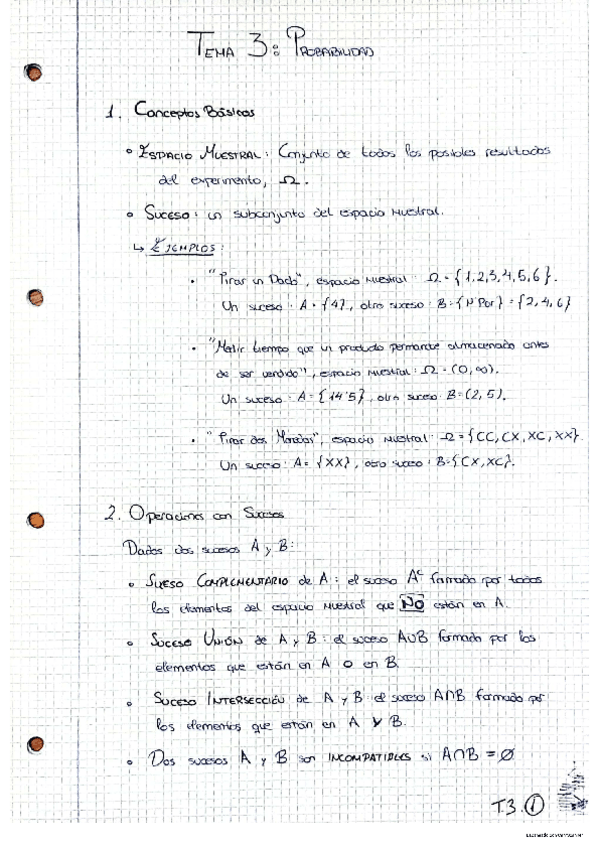 TEMA 3: PROBABILIDAD
1. Conceptos Básicos
• ESPACIO MUESTRAL: Conjunto de todos los posibles resultados
del experimento, Ω.
• SUCESO: un subconjunto del espacio muestral.
↳ EJEMPLOS:
• "Tirar un Dado", espacio muestral: Ω = {1,2,3,4,5,6}.
Un suceso: A = {4}, otro suceso: B = {Nº Par} = {2,4,6}
• "Medir tiempo que un producto permanece almacenado antes
de ser vendido", espacio muestral: Ω = (0,∞).
Un suceso: A = {14'5}, otro suceso: B = (2,5).
• "Tirar dos Monedas", espacio muestral: Ω = {CC, CX, XC, XX}.
Un suceso: A = {XX}, otro suceso: B = {CX, XC}.
2. Operaciones con Sucesos
Dados dos sucesos A y B:
• SUCESO COMPLEMENTARIO de A: el suceso Aᶜ formado por todos
los elementos del espacio muestral que NO están en A.
• SUCESO UNIÓN de A y B: el suceso A∪B formado por los
elementos que están en A o en B.
• SUCESO INTERSECCIÓN de A y B: el suceso A∩B formado por
los elementos que están en A y B.
• Dos sucesos A y B son INCOMPATIBLES si A∩B = ∅
T.3. 1